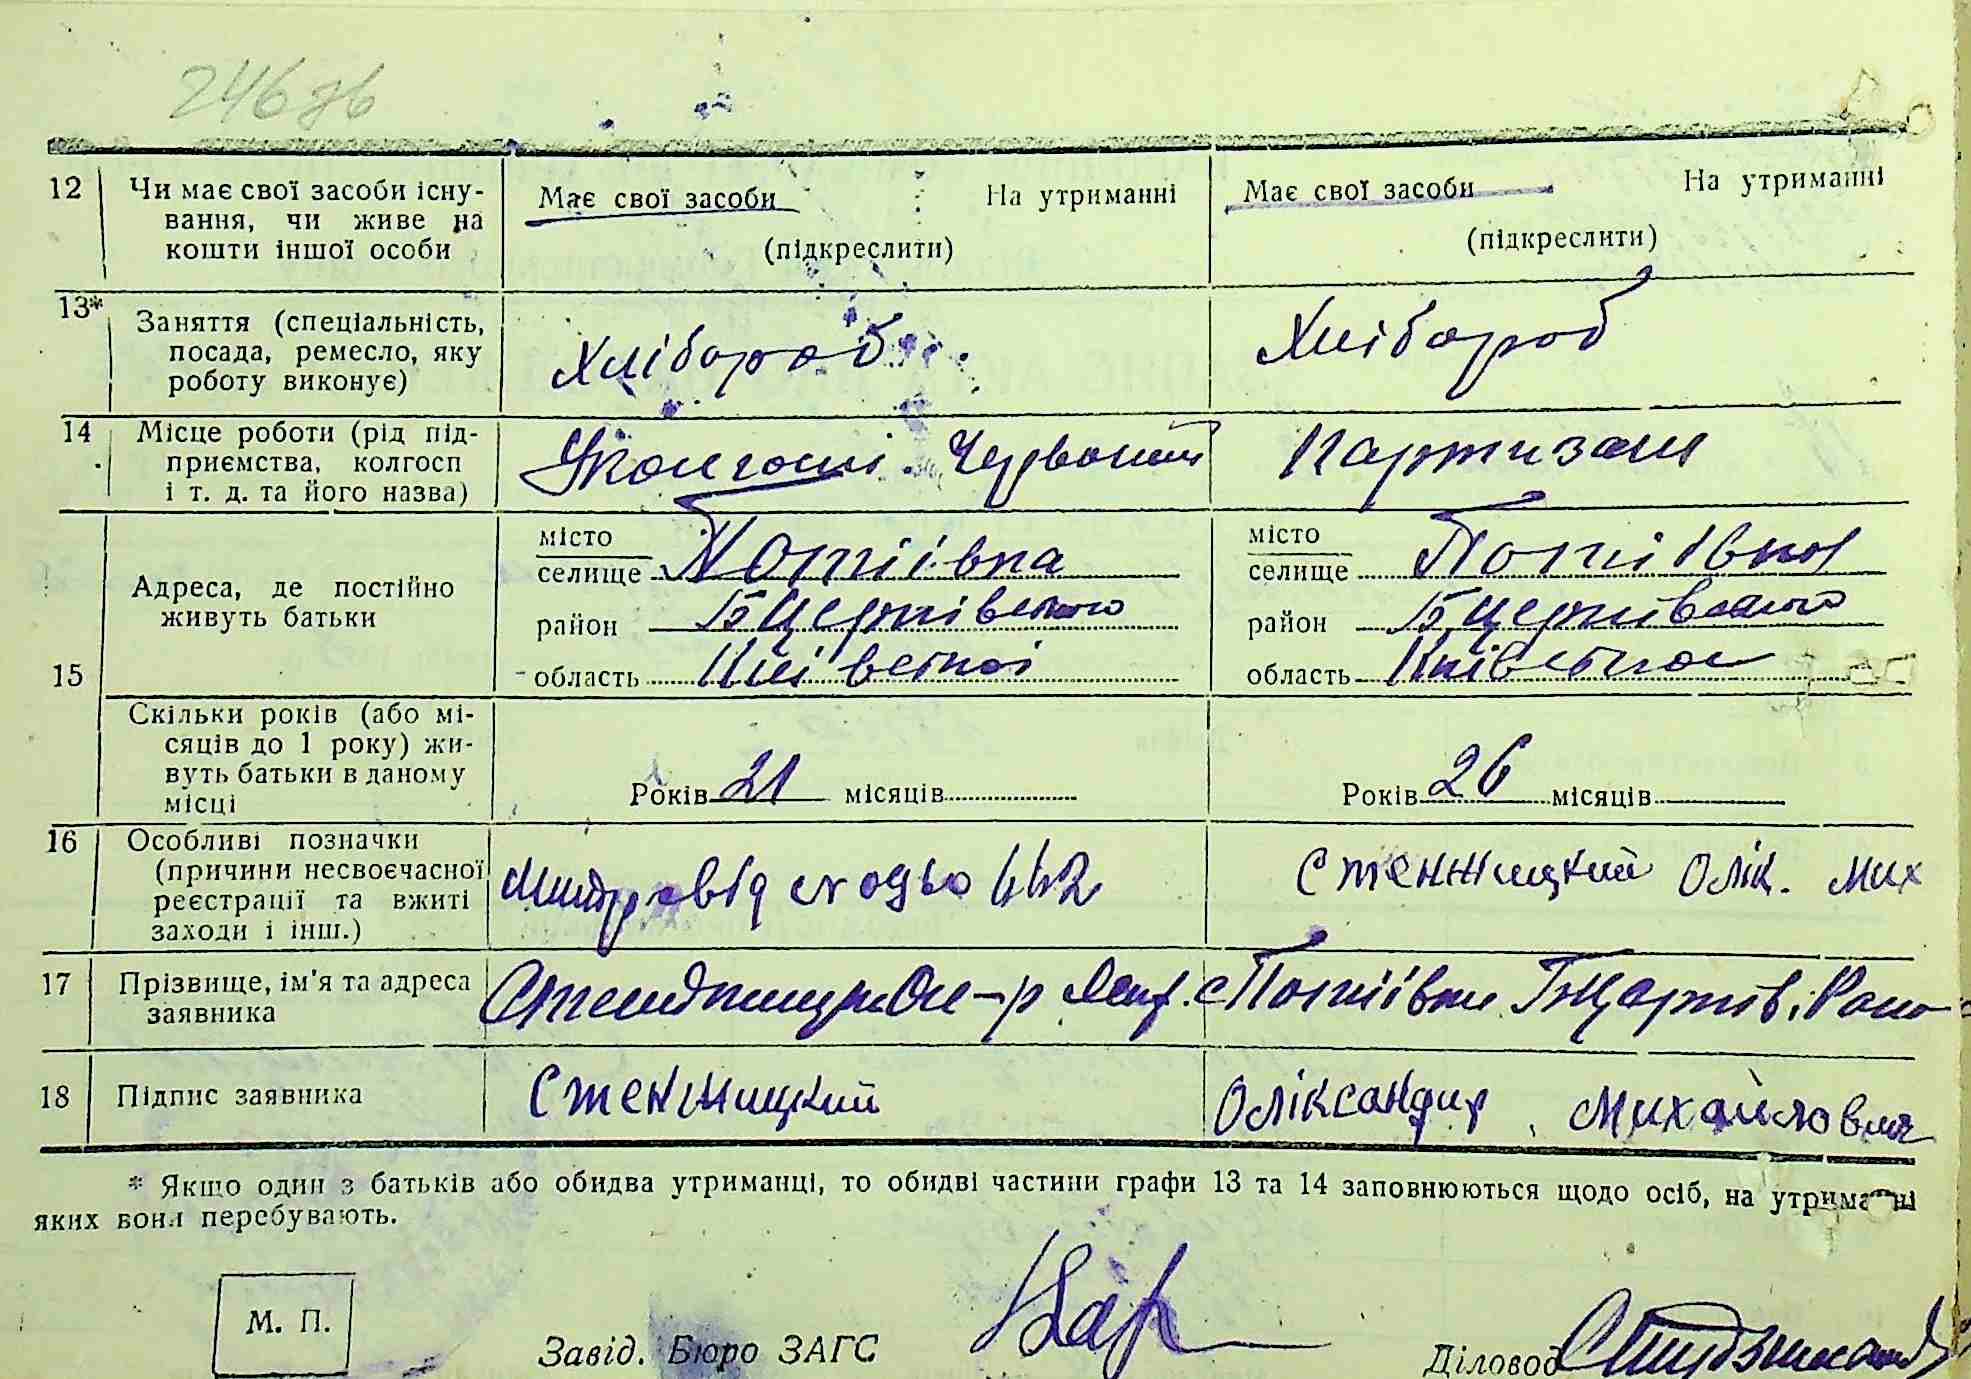 246 зв
12 Чи має свої засоби існу- Має свої засоби На утриманні Має свої засоби На утриманні
вання, чи живе на
кошти іншої особи (підкреслити) (підкреслити)
13* Заняття (спеціальність,
посада, ремесло, яку Хлібороб Хлібороб
роботу виконує)
14 Місце роботи (рід під-
приємства, колгосп Червоний Партизан
і т. д. та його назва)
15 Адреса, де постійно
живуть батьки
місто місто
селище Потіївка селище Потіївка
район Бцерківського район Бцерківського
область Київської область Київської
Скільки років (або мі-
сяців до 1 року) жи-
вуть батьки в даному
місці Років 21 місяців Років 26 місяців
16 Особливі позначки
(причини несвоєчасної Стенжицкий Олік. Мих
реєстрації та вжиті
заходи і інш.)
17 Прізвище, ім'я та адреса
заявника с Потіївка
18 Підпис заявника Стенжицкий Оліксандир Михайлович
* Якщо один з батьків або обидва утриманці, то обидві частини графи 13 та 14 заповнюються щодо осіб, на утриманні
яких вони перебувають.
М. П.
Завід. Бюро ЗАГС Діловод